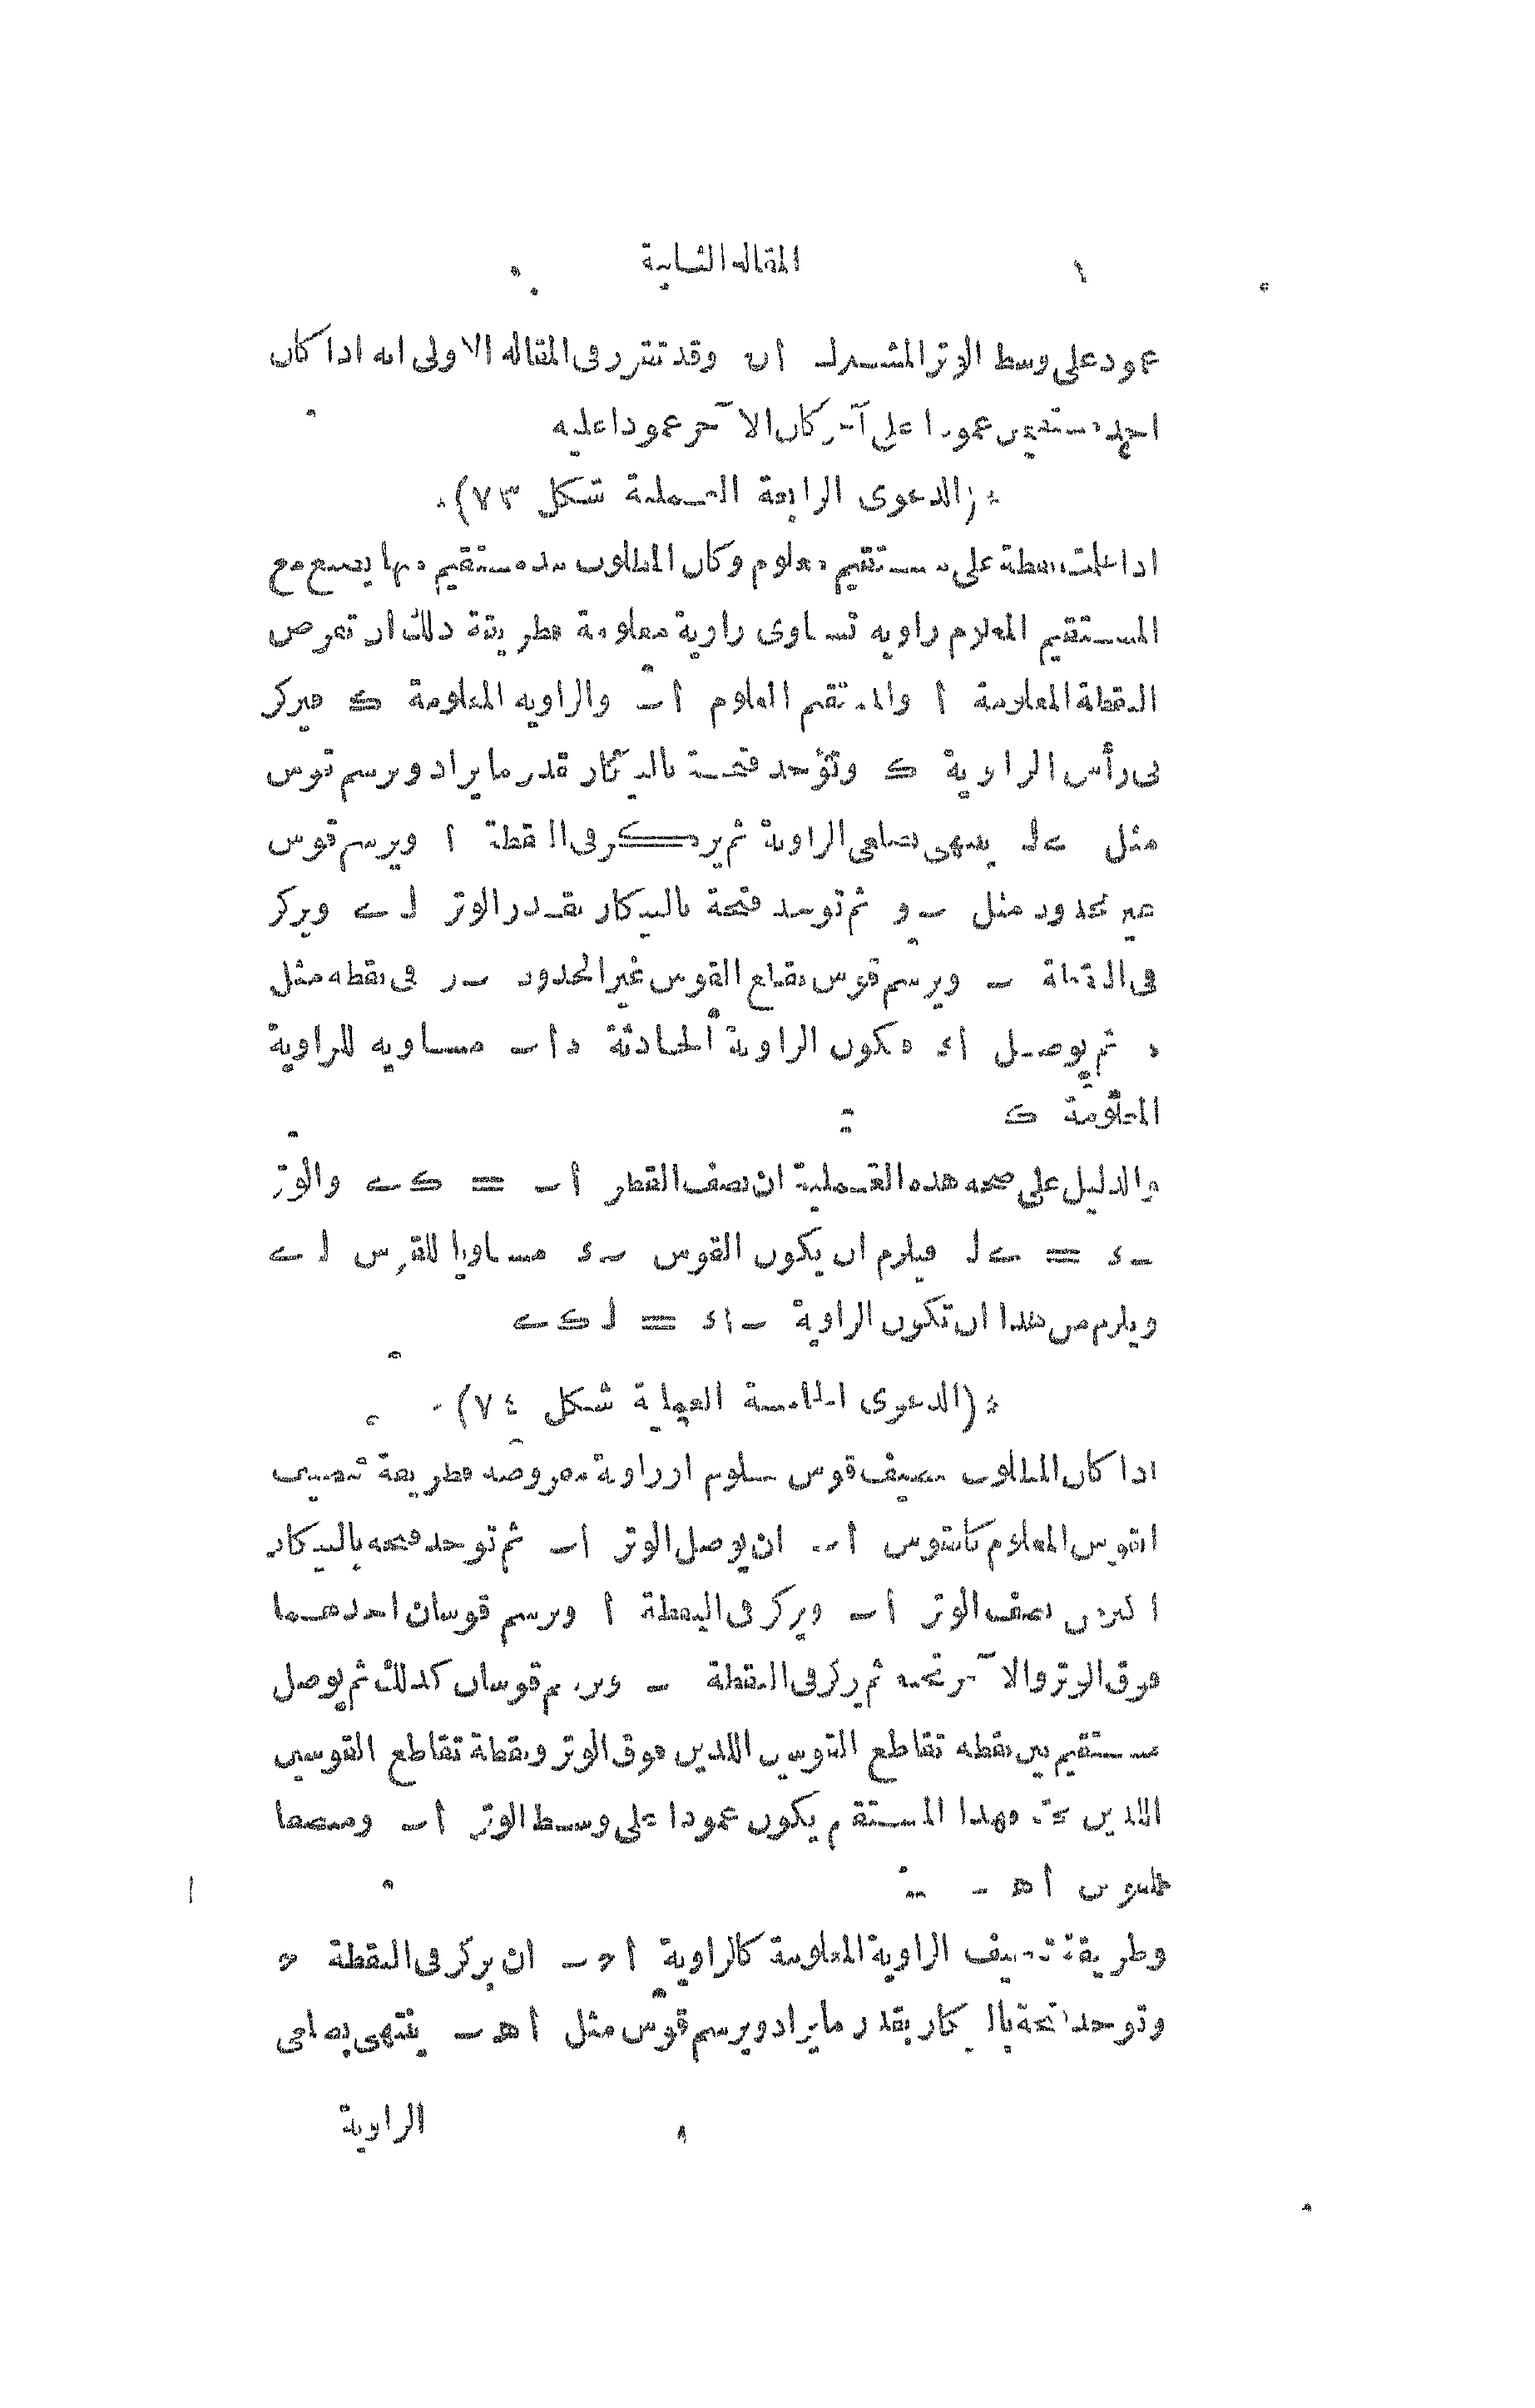 المقالة الثانية
عمود على وسط الوتر المشترك اب وقد تقرر فى المقالة الاولى انه اذا كان
احد مستقيمين عمودا على آخر كان الآخر عموداعليه
(الدعوى الرابعة العملية شكل ٧٣)
اذا علمت نقطة على مستقيم معلوم وكان المطلوب مد مستقيم منها يصنع مع
المستقيم المعلوم زاوية تساوى زاوية معلومة فطريقة ذلك ان تفرض
النقطة المعلومة ا والمستقيم المعلوم اب والزاوية المعلومة ك فيركز
فى رأس الزاوية ك وتؤخذ فتحة بالبيكار قدر ما يراد ويرسم قوس
مثل ى ل ينتهى بضلعى الزاوية ثم يركز فى النقطة ا ويرسم قوس
غير محدود مثل ب و ثم توخذ فتحة بالبيكار بقدر الوتر ل ى ويركز
فى النقطة ب ويرسم قوس يقطع القوس غير المحدود ب و فى نقطة مثل
د ثم يوصل اد فتكون الزاوية الحادثة داب مساوية للزاوية
المعلومة ك
والدليل على صحة هذه العملية ان نصف القطر اب = ك ى والوتر
ب د = ى ل فيلزم ان يكون القوس ب د مساويا للقوس ل ى
ويلزم من هذا ان تكون الزاوية ب اد = ل ك ى
(الدعوى الخامسة العملية شكل ٧٤)
اذا كان المطلوب تنصيف قوس معلوم او زاوية مفروضة فطريقة تنصيف
القوس المعلوم كالقوس اب ان يوصل الوتر اب ثم توخذ فتحة بالبيكار
اكبر من نصف الوتر اب ويركز فى النقطة ا ويرسم قوسان احدهما
فوق الوتر والآخر تحته ثم يركز فى النقطة ب ويرسم قوسان كذلك ثم يوصل
مستقيم بين نقطة تقاطع القوسين اللذين فوق الوتر ونقطة تقاطع القوسين
اللذين تحته فهذا المستقيم يكون عمودا على وسط الوتر اب ومنصفا
للقوس ا هـ ب
وطريقة تنصيف الزاوية المعلومة كالزاوية ا ح ب ان يركز فى النقطة ح
وتوخذ فتحة بالبيكار بقدر ما يراد ويرسم قوس مثل ا هـ ب ينتهى بضلعى
الزاوية